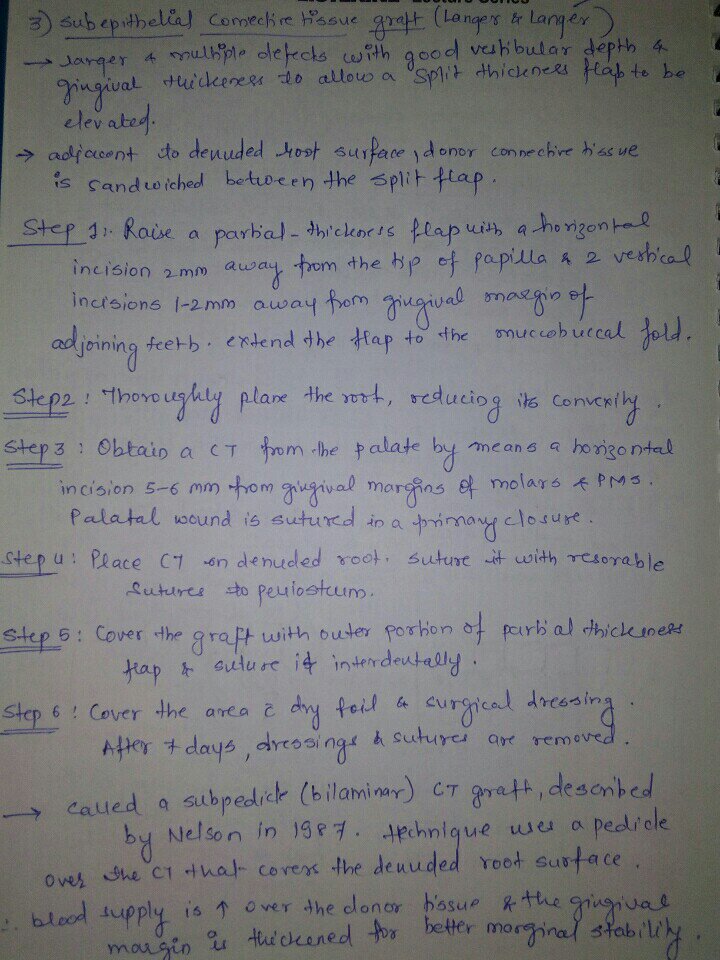 3) subepithelial connective tissue graft (Langer & Langer)
→ larger & multiple defects with good vestibular depth &
gingival thickeness to allow a split thickness flap to be
elevated.
→ adjacent to denuded root surface, donor connective tissue
is sandwiched between the split flap.
Step 1:- Raise a partial-thickness flap with a horizontal
incision 2mm away from the tip of papilla & 2 vertical
incisions 1-2mm away from gingival margin of
adjoining teeth. extend the flap to the muccobuccal fold.
Step2: Thoroughly plane the root, reducing its convexity.
Step 3: Obtain a CT from the palate by means a horizontal
incision 5-6 mm from gingival margins of molars & PMs.
Palatal wound is sutured in a primary closure.
Step 4: Place CT on denuded root. suture it with resorable
sutures to periosteum.
Step 5: Cover the graft with outer portion of partial thickeness
flap & suture it interdentally.
Step 6: Cover the area c̄ dry foil & surgical dressing.
After 7 days, dressings & sutures are removed.
→ called a subpedicle (bilaminar) CT graft, described
by Nelson in 1987. technique uses a pedicle
over the CT that covers the denuded root surface.
∴ blood supply is ↑ over the donor tissue & the gingival
margin is thickened for better marginal stability.